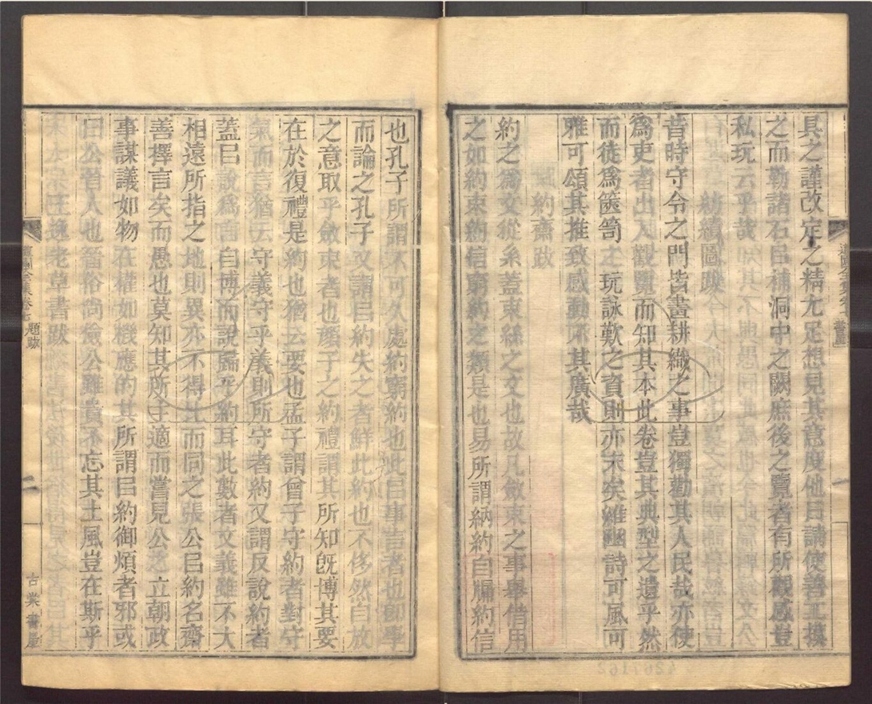 具之謹改定之精尤足想見其意度他日請使善工摸
之而勒諸石㠯補洞中之闕庶後之覽者有所觀感豈
私玩云乎哉
紡績圖跋
昔時守令之門皆畫耕織之事豈獨勸其人民哉亦使
爲吏者出入觀覽而知其本此卷豈其典型之遺乎然
而徒爲篋笥之玩詠歎之資則亦末矣雖國詩可風可
雅可頌其推致感動不其廣哉
約齋跋
約之爲文從糸蓋束絲之文也故凡斂束之事舉借用
之如約束約信窮約之類是也易所謂納約自牖約信
也孔子所謂不可久處約窮約也此㠯事言者也卽事
而論之孔子又謂㠯約失之者鮮此約也不侈然自放
之意取乎斂束者也顏子之約禮謂其所知旣博其要
在於復禮是約也猶云要也孟子謂曾子守約者對守
氣而言猶云守義守乎義則所守者約又謂反說約者
蓋㠯說爲自博而說歸乎約耳此數者文義雖不大
相遠所指之地則異亦不得比而同之張公㠯約名齋
善擇言矣而愚也莫知其所主適而嘗見公之立朝政
事謀議如物在權如機應的其所謂㠯約御煩者邪或
曰公晉人也俗尚儉公雖貴不忘其土風豈在斯乎
王逸老草書跋
題跋
二
古棠書屋